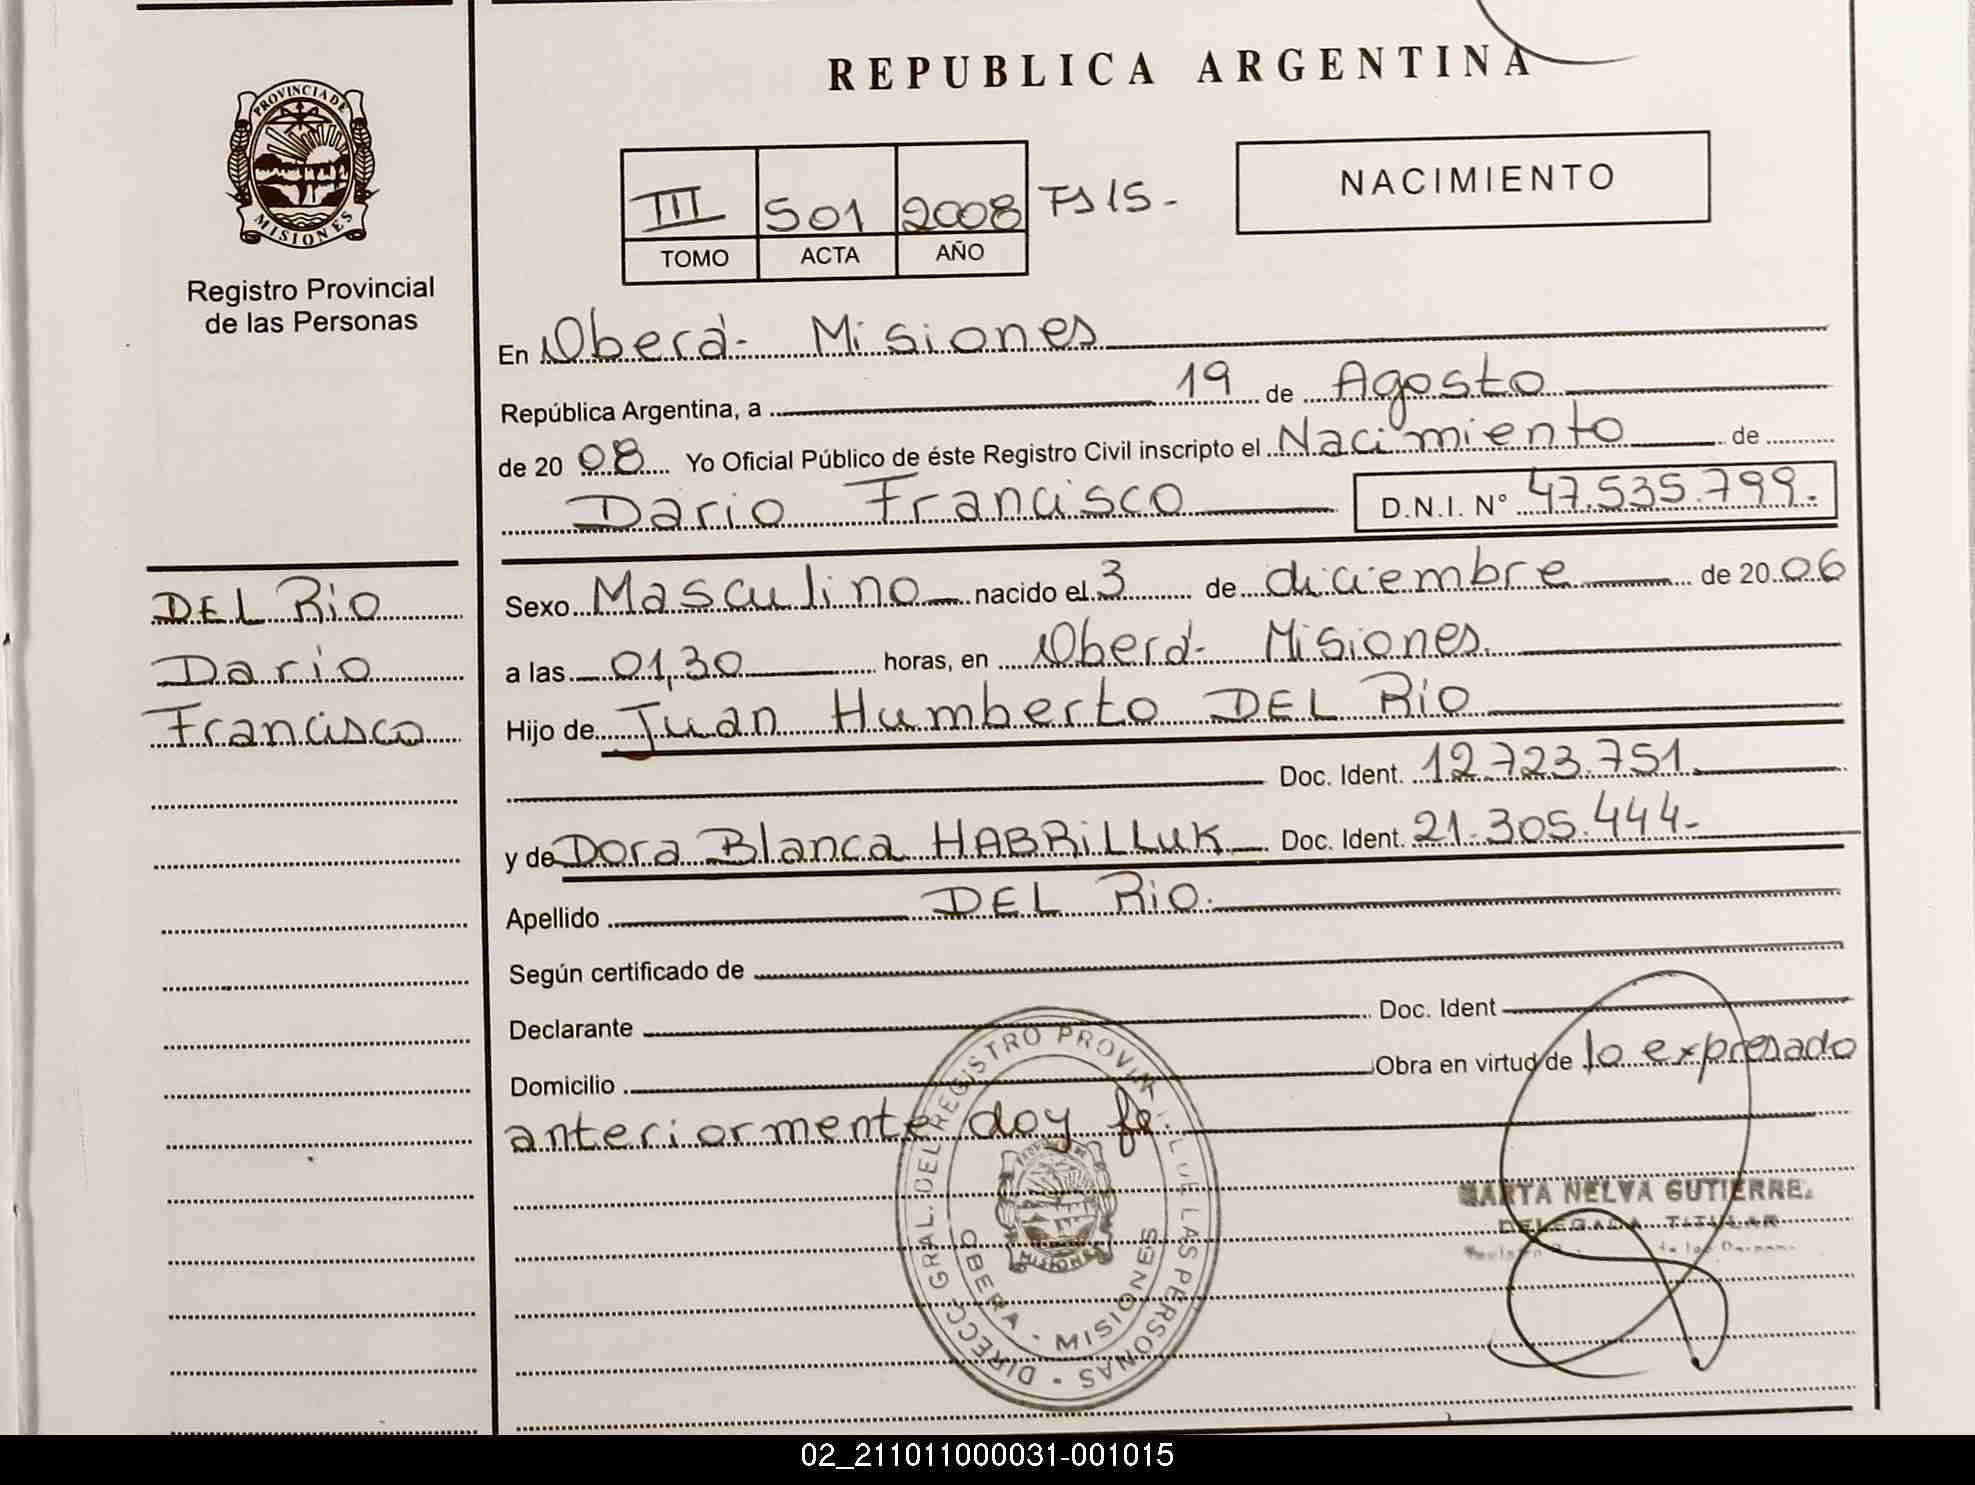 REPUBLICA ARGENTINA
PROVINCIA DE
MISIONES
Registro Provincial
de las Personas
III 501 2008 Fs 15-
TOMO ACTA AÑO
NACIMIENTO
En Oberá- Misiones
República Argentina, a 19 de Agosto
de 20 08 Yo Oficial Público de éste Registro Civil inscripto el Nacimiento de
Dario Francisco D.N.I. N° 47.535.799.
DEL RiO
Dario
Francisco
Sexo Masculino nacido el 3 de diciembre de 20 06
a las 01,30 horas, en Oberá- Misiones.
Hijo de Juan Humberto DEL RiO
Doc. Ident. 12.723.751.
y de Dora Blanca HABRiLLUK Doc. Ident. 21.305.444-
Apellido DEL RiO.
Según certificado de
Declarante Doc. Ident
Domicilio Obra en virtud de lo expresado
anteriormente doy fe.
DIRECC. GRAL. DEL REGISTRO PROVINCIAL DE LAS PERSONAS
OBERA - MISIONES
MISIONES
MARTA NELVA GUTIERRE
DELEGADA TITULAR
02_211011000031-001015